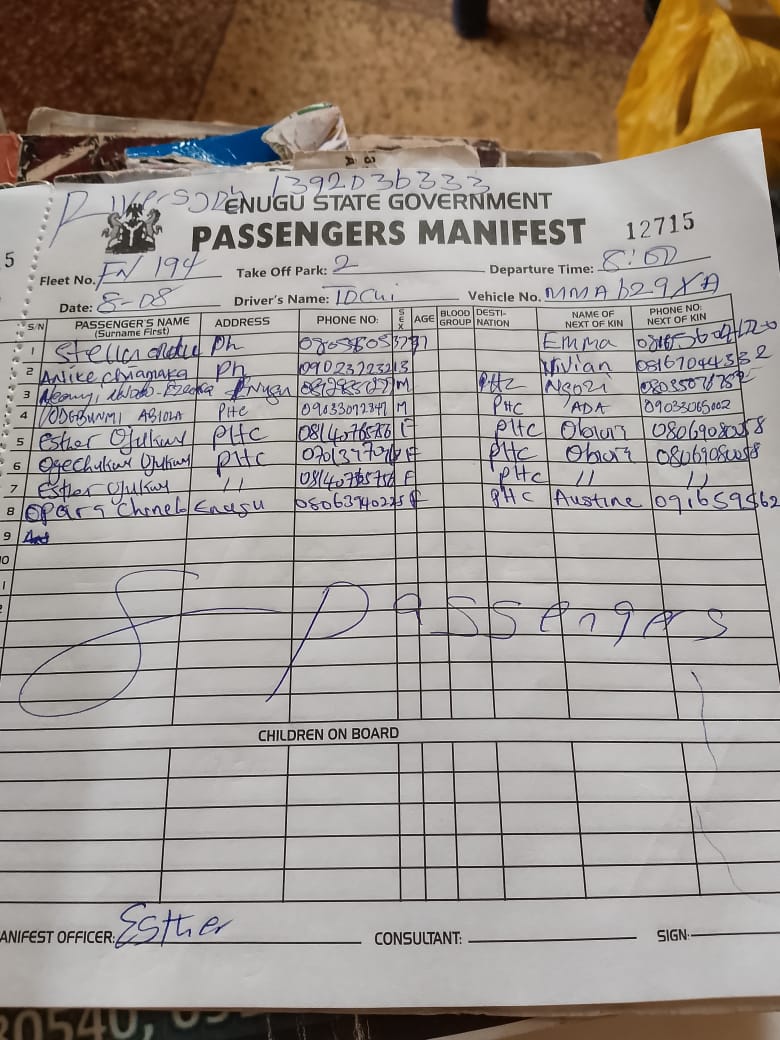 1392036333
ENUGU STATE GOVERNMENT
PASSENGERS MANIFEST 12715
5
Fleet No. FN 194 Take Off Park: 2 Departure Time: 8:00
Date: 8-08 Driver's Name: TOChi Vehicle No. MMA629XA
S/N PASSENGER'S NAME (Surname First) ADDRESS PHONE NO: SEX AGE BLOOD GROUP DESTI-NATION NAME OF NEXT OF KIN PHONE NO: NEXT OF KIN
1 Stella Ph Emma
2 Anike chiamaka Ph 09023723213 Vivian 08167044532
3 M PHc Ngozi
4 ABIOLA PHC 09033072347 M PHC ADA 09033065002
5 Esther Ojukwu PHC F PHC 08069080058
6 Ogechukwu Ojukwu PHC F PHC 08069080058
7 Esther Ojukwu // F PHC // //
8 Opara Enugu 08063940225 F PHC Austine 091659562
9
10
8 Passengers
CHILDREN ON BOARD
MANIFEST OFFICER: Esther CONSULTANT: SIGN:
30540,